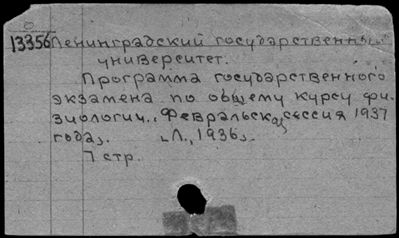 13356 Ленинградский государственный
университет.
Программа государственного
экзамена по общему курсу фи-
зиологии.. Февральская сессия 1937
года. Л., 1936.
7 стр.